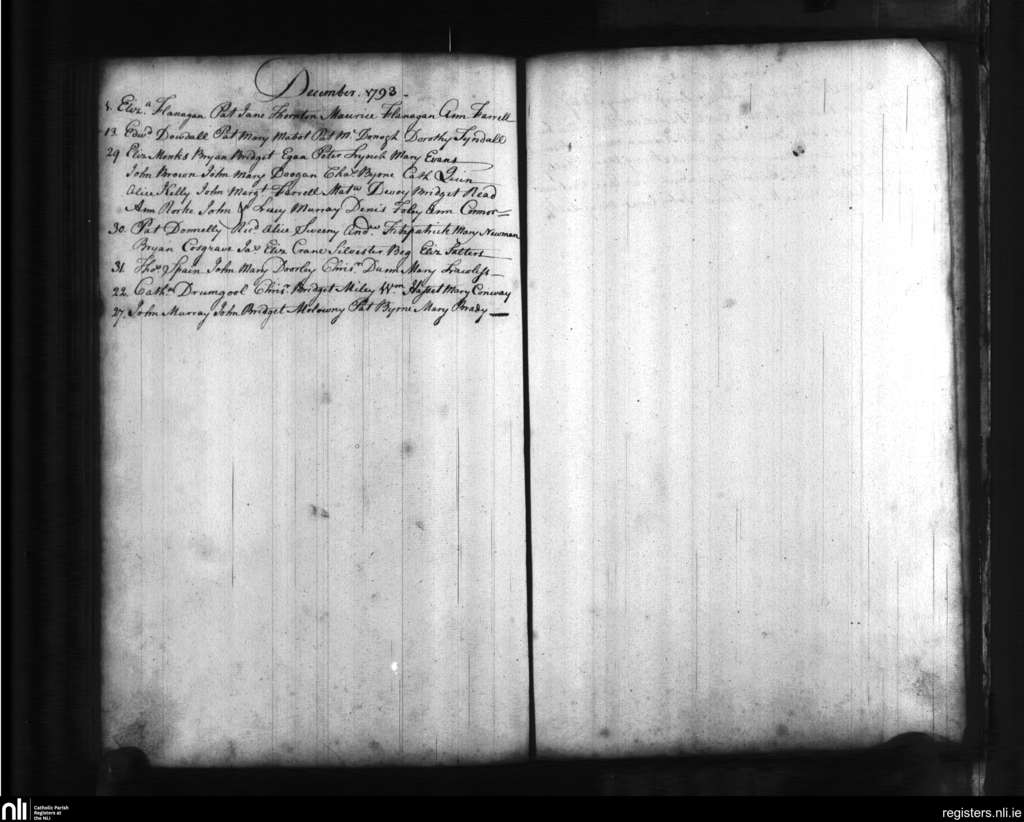 December. 1793 -
Eliz.a Flanagan Pat Jane Thornton Maurice Flanagan Ann Farrell
13. Edwd Dowdall Pat Mary Pat Mc Donogh Dorothy Tyndall
29 Eliz Monks Bryan Bridget Egan Peter Lynch Mary Evans
John Brown John Mary Doogan Chas Byrne Cath Quin
Alice Kelly John Margt Farrell Matw Devoy Bridget Read
Ann Rorke John & Lucy Murray Denis Foley Ann Connor
30. Pat Donnelly Ricd Alice Sweeny Andw Fitzpatrick Mary Newman
Bryan Cosgrave Jas Eliz Crane Silvester Beg Eliz
31. Thos Spain John Mary Doorley Chrisr Dunn Mary Lawless
22. Cathn Drumgool Chrisr Bridget Miley Wm Mary Conway
27. John Murray John Bridget Molowny Pat Byrne Mary Brady
nli
Catholic Parish
Registers at
the NLI
registers.nli.ie